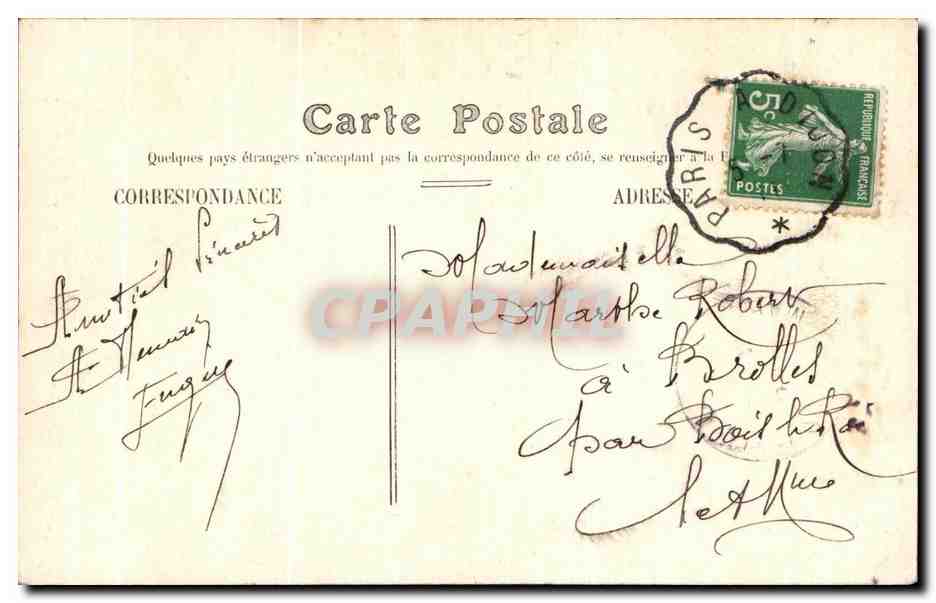 Carte Postale
Quelques pays étrangers n'acceptant pas la correspondance de ce côté, se renseigner à la
CORRESPONDANCE
ADRESSE
REPUBLIQUE FRANÇAISE
5c
POSTES
PARIS A DIJON
Amitiés sincères
Mademoiselle
Marthe Robert
à Brolles
par Bois le Roi
S et Mne
CPAPHIL